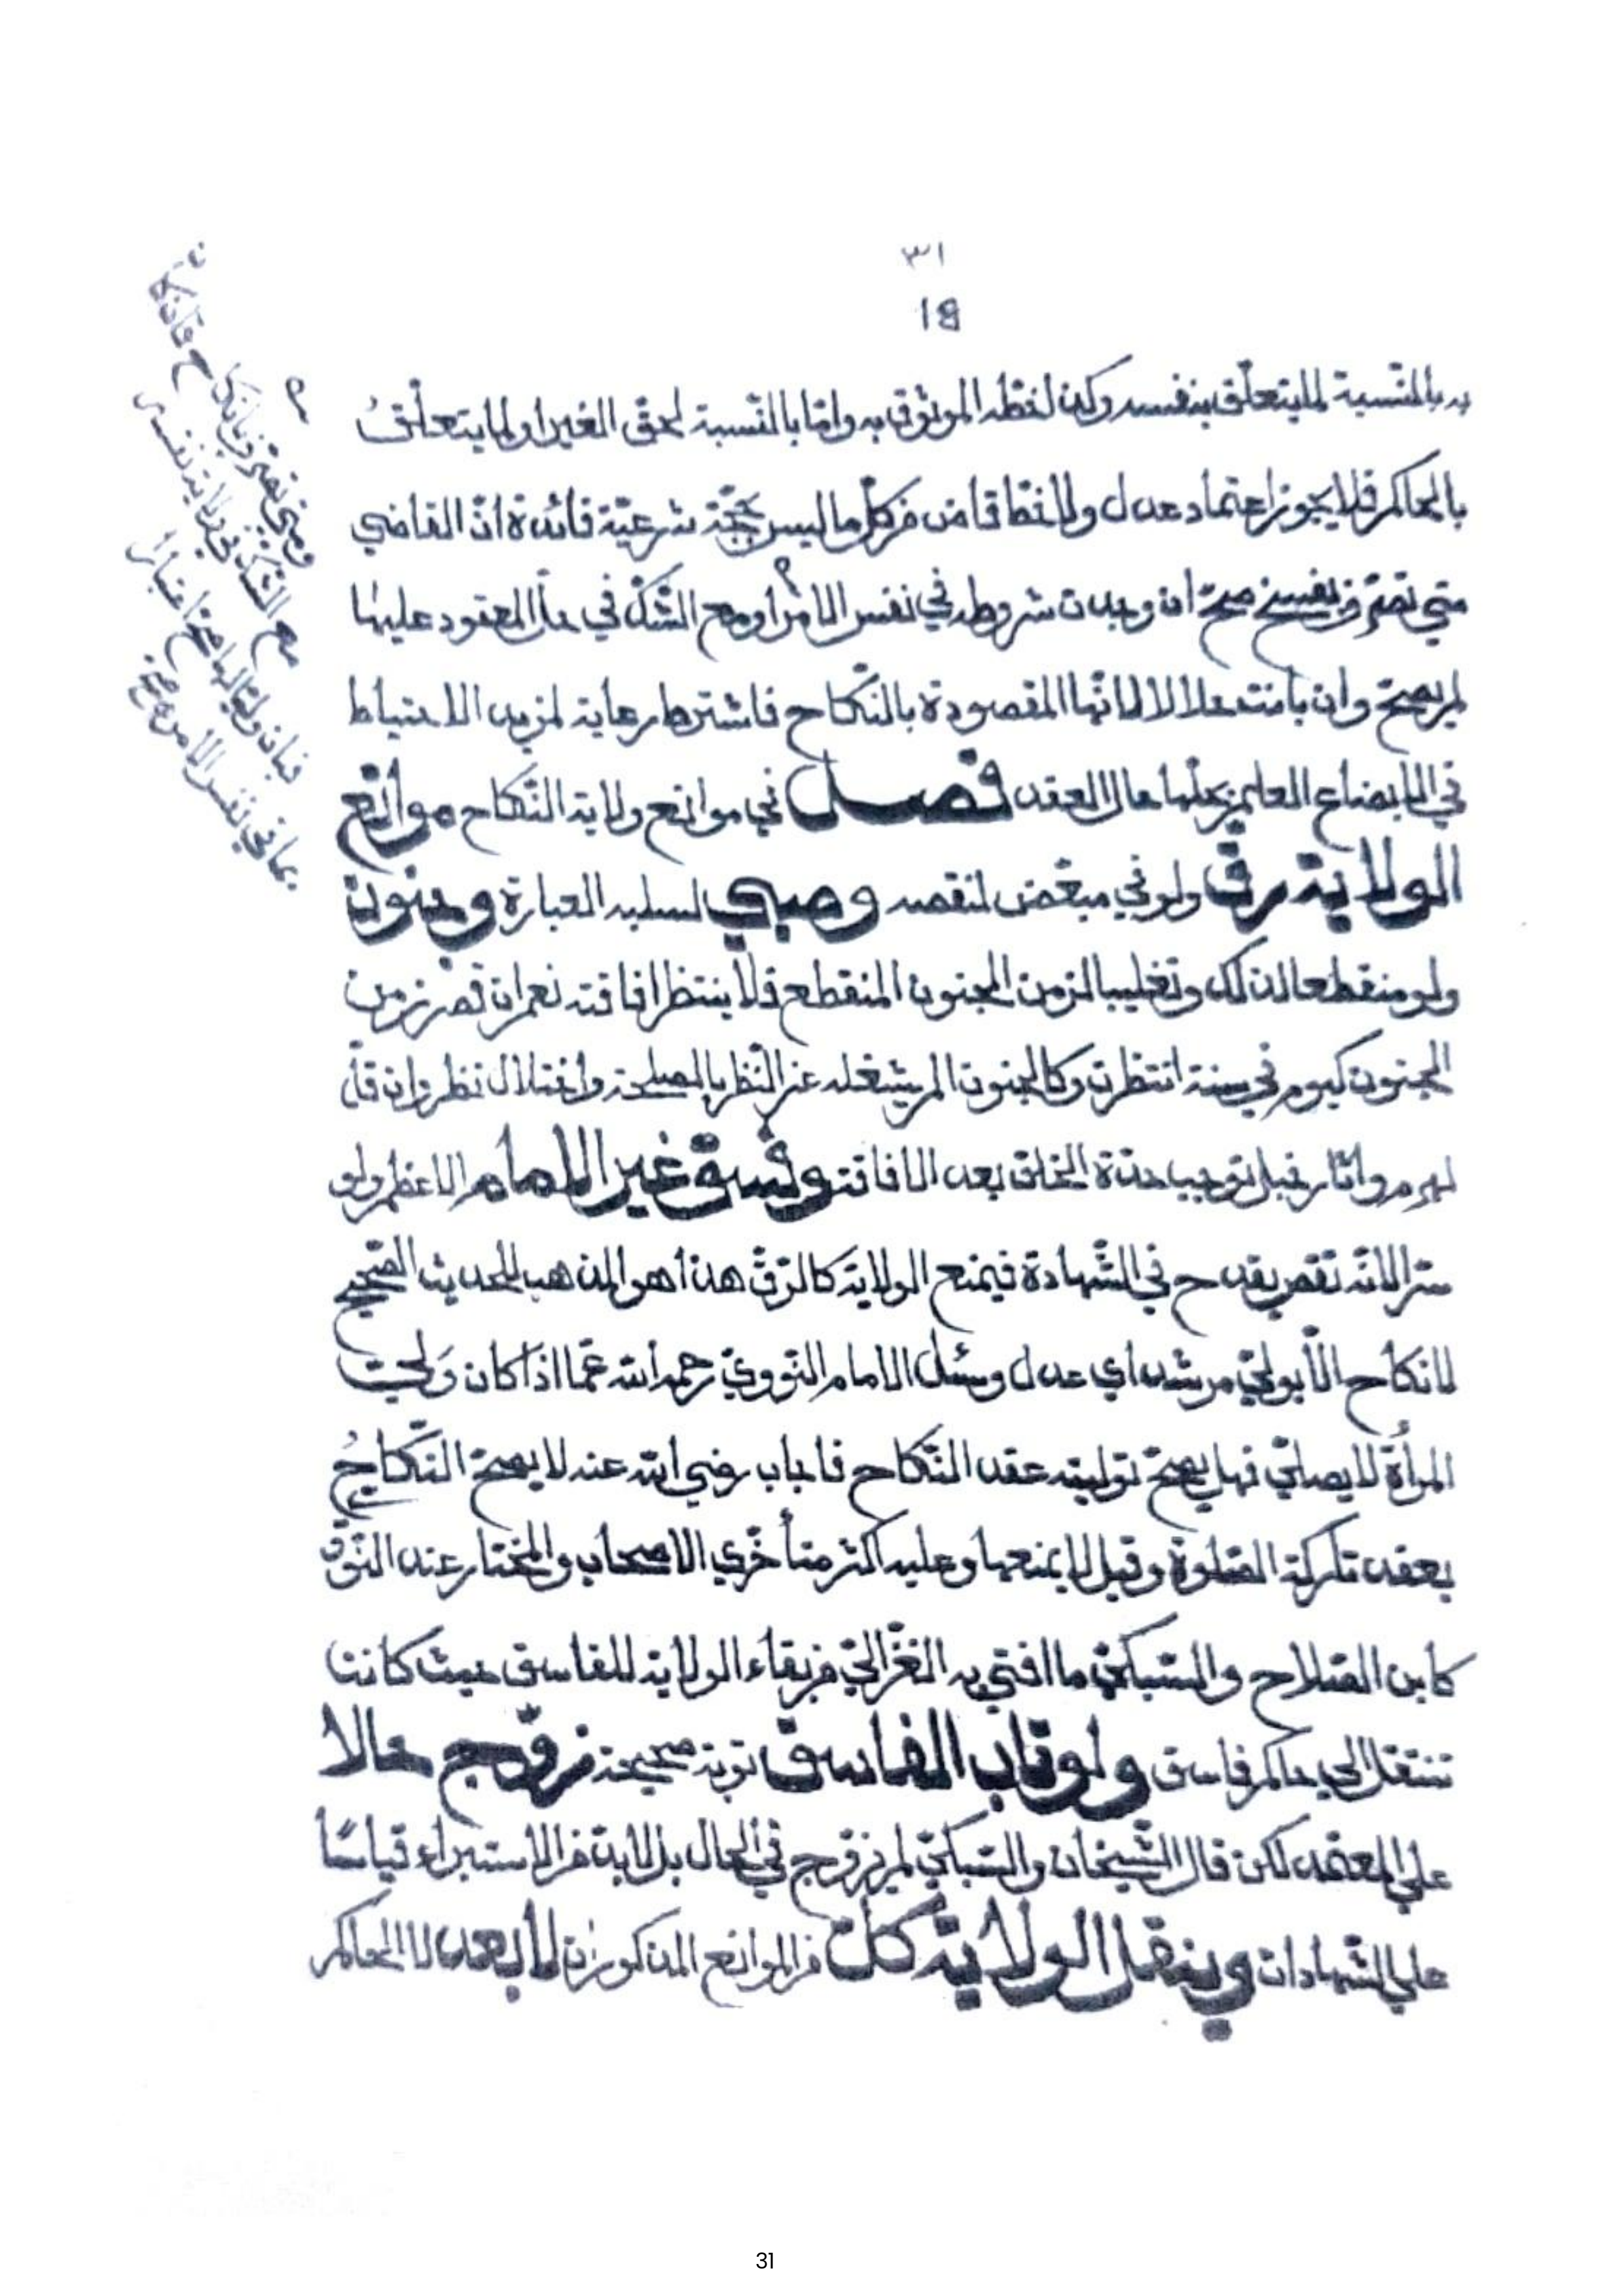 ٣١
18
به بالنسبة لما يتعلق بنفسه وكذا لخطه الموثوق به واما بالنسبة لحق الغير او لما يتعلق
بالحاكم فلا يجوز اعتماد عدل ولا خط قاض من كل ما ليس بحجة شرعية فائدة ان القاضي
متى فسخ صح ان وجدت شروطه في نفس الامر ومع الشك في حل المعقود عليها
لم يصح وان بانت حلالا لانها المقصودة بالنكاح فاشترط رعاية لمزيد الاحتياط
في الابضاع العلم بحلها حال العقد فصل في موانع ولاية النكاح موانع
الولاية رق ولو في مبعض لنقصه وصبي لسلبه العبارة وجنون
ولو منقطعا لذلك وتغليبا لزمن الجنون المنقطع فلا ينتظر افاقته نعم ان قصر زمن
الجنون كيوم في سنة انتظرت وكالجنون الم يشغله عن النظر بالمصلحة واختلال نظر وان قل
لهرم واثار خبل توجب حدة الخلق بعد الافاقة وفسق غير الامام الاعظم ولو
سرا لانه نقص يقدح في الشهادة فيمنع الولاية كالرق هذا هو المذهب للحديث الصحيح
لا نكاح الا بولي مرشد اي عدل وسئل الامام النووي رحمه الله عما اذا كان ولي
المرأة لا يصلي فهل يصح توليته عقد النكاح فاجاب رضي الله عنه لا يصح النكاح
بعقد تاركة الصلوة وقيل لا يمنعها وعليه اكثر متأخري الاصحاب والمختار عند النوو
كابن الصلاح والسبكي ما افتى به الغزالي من بقاء الولاية للفاسق حيث كانت
تنتقل الى حاكم فاسق ولو تاب الفاسق توبة صحيحة زوج حالا
على المعتمد لكن قال الشيخان والسبكي لم يزوج في الحال بل لا بد من الاستبراء قياسا
على الشهادات وينقل الولاية كل من الموانع المذكورات لابعد لا الحاكم
مع الشك
في نفس الامر
31